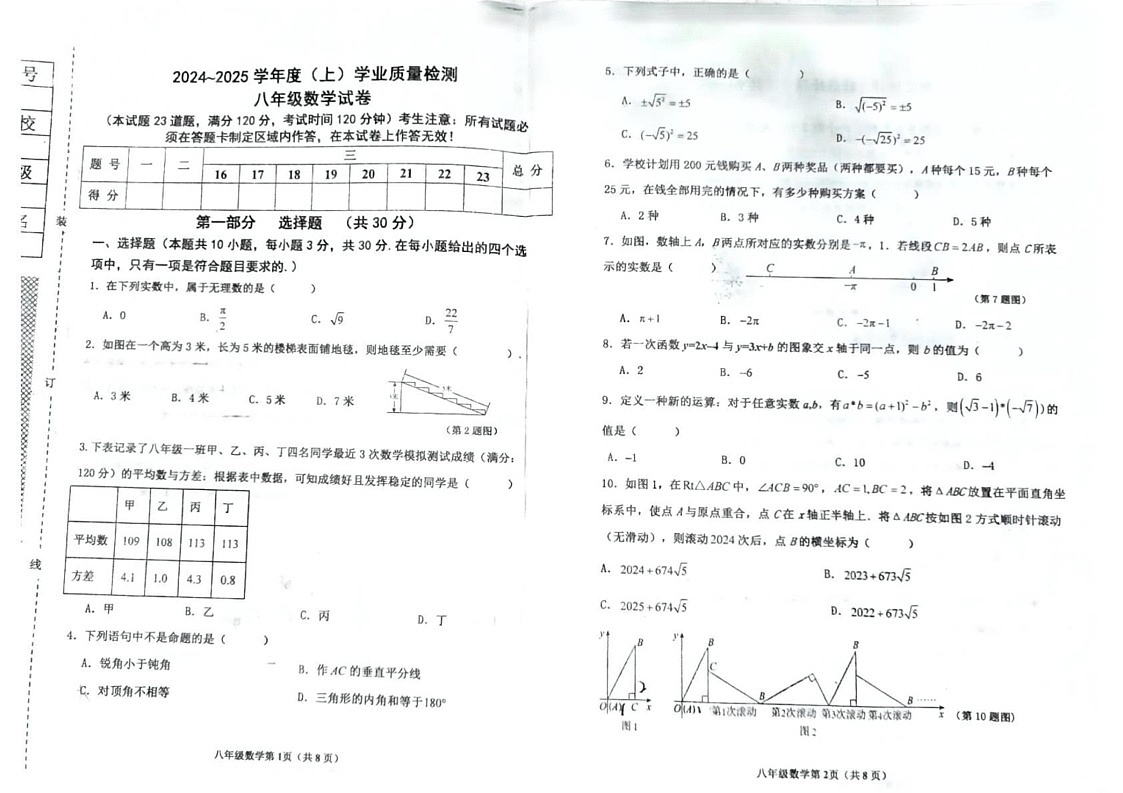 号
校
级
名
装
订
线
2024~2025 学年度（上）学业质量检测
八年级数学试卷
（本试题 23 道题，满分 120 分，考试时间 120 分钟）考生注意：所有试题必
须在答题卡制定区域内作答，在本试卷上作答无效！
题 号 一 二 三 总 分
16 17 18 19 20 21 22 23
得 分
第一部分 选择题 （共 30 分）
一、选择题（本题共 10 小题，每小题 3 分，共 30 分.在每小题给出的四个选
项中，只有一项是符合题目要求的.）
1．在下列实数中，属于无理数的是（ ）
A．0 B．π/2 C．√9 D．22/7
2．如图在一个高为 3 米，长为 5 米的楼梯表面铺地毯，则地毯至少需要（ ）.
A．3 米 B．4 米 C．5 米 D．7 米
（第 2 题图）
3.下表记录了八年级一班甲、乙、丙、丁四名同学最近 3 次数学模拟测试成绩（满分：
120 分）的平均数与方差：根据表中数据，可知成绩好且发挥稳定的同学是（ ）
甲 乙 丙 丁
平均数 109 108 113 113
方差 4.1 1.0 4.3 0.8
A．甲 B．乙 C．丙 D．丁
4．下列语句中不是命题的是（ ）
A．锐角小于钝角 B．作 AC 的垂直平分线
C．对顶角不相等 D．三角形的内角和等于180°
八年级数学第 1页（共 8 页）
5．下列式子中，正确的是（ ）
A．±√5² = ±5 B．√(−5)² = ±5
C．(−√5)² = 25 D．−(−√25)² = 25
6．学校计划用 200 元钱购买 A、B 两种奖品（两种都要买），A 种每个 15 元，B 种每个
25 元，在钱全部用完的情况下，有多少种购买方案（ ）
A．2 种 B．3 种 C．4 种 D．5 种
7．如图，数轴上 A，B 两点所对应的实数分别是 −π，1．若线段 CB = 2AB，则点 C 所表
示的实数是（ ）
C A B
−π 0 1
（第 7 题图）
A．π+1 B．−2π C．−2π−1 D．−2π−2
8．若一次函数 y=2x−4 与 y=3x+b 的图象交 x 轴于同一点，则 b 的值为（ ）
A．2 B．−6 C．−5 D．6
9．定义一种新的运算：对于任意实数 a,b，有 a*b=(a+1)²−b²，则(√3−1)*(−√7))的
值是（ ）
A．−1 B．0 C．10 D．−4
10．如图 1，在Rt△ABC 中，∠ACB = 90°，AC = 1, BC = 2，将△ABC 放置在平面直角坐
标系中，使点 A 与原点重合，点 C 在 x 轴正半轴上．将△ABC 按如图 2 方式顺时针滚动
（无滑动），则滚动 2024 次后，点 B 的横坐标为（ ）
A．2024+674√5 B．2023+673√5
C．2025+674√5 D．2022+673√5
y B 2 O (A) 1 C x
图 1
y B C B B B ……
O (A) 1 第1次滚动 第2次滚动 第3次滚动 第4次滚动 x （第 10 题图）
图 2
八年级数学第 2页（共 8 页）